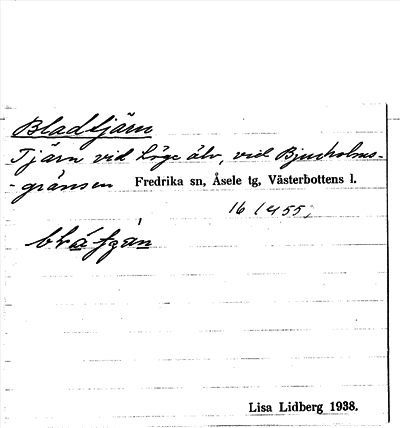 Bladtjärn
Tjärn vid Lögde älv, vid Bjurholms-
-gränsen Fredrika sn, Åsele tg, Västerbottens l.
16/455,
Lisa Lidberg 1938.